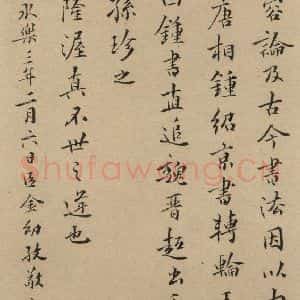 容論及古今書法因以右
唐相鍾紹京書轉輪王
曰鍾書直追魏晉超出
孫珍之
隆渥真不世之遇也
永樂三年二月六日臣金幼孜敬
Shufawang.Cn